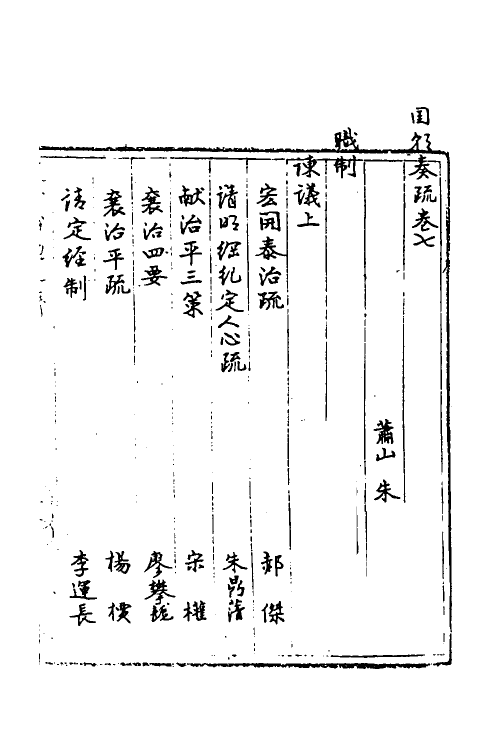 国朝奏疏卷七
蕭山 朱
職制
諌議上
宏開泰治疏 郝 傑
請明經紀定人心疏 朱鼎蒲
献治平三策 宋 權
襄治四要 廖攀龍
襄治平疏 楊 璜
請定經制 李運長